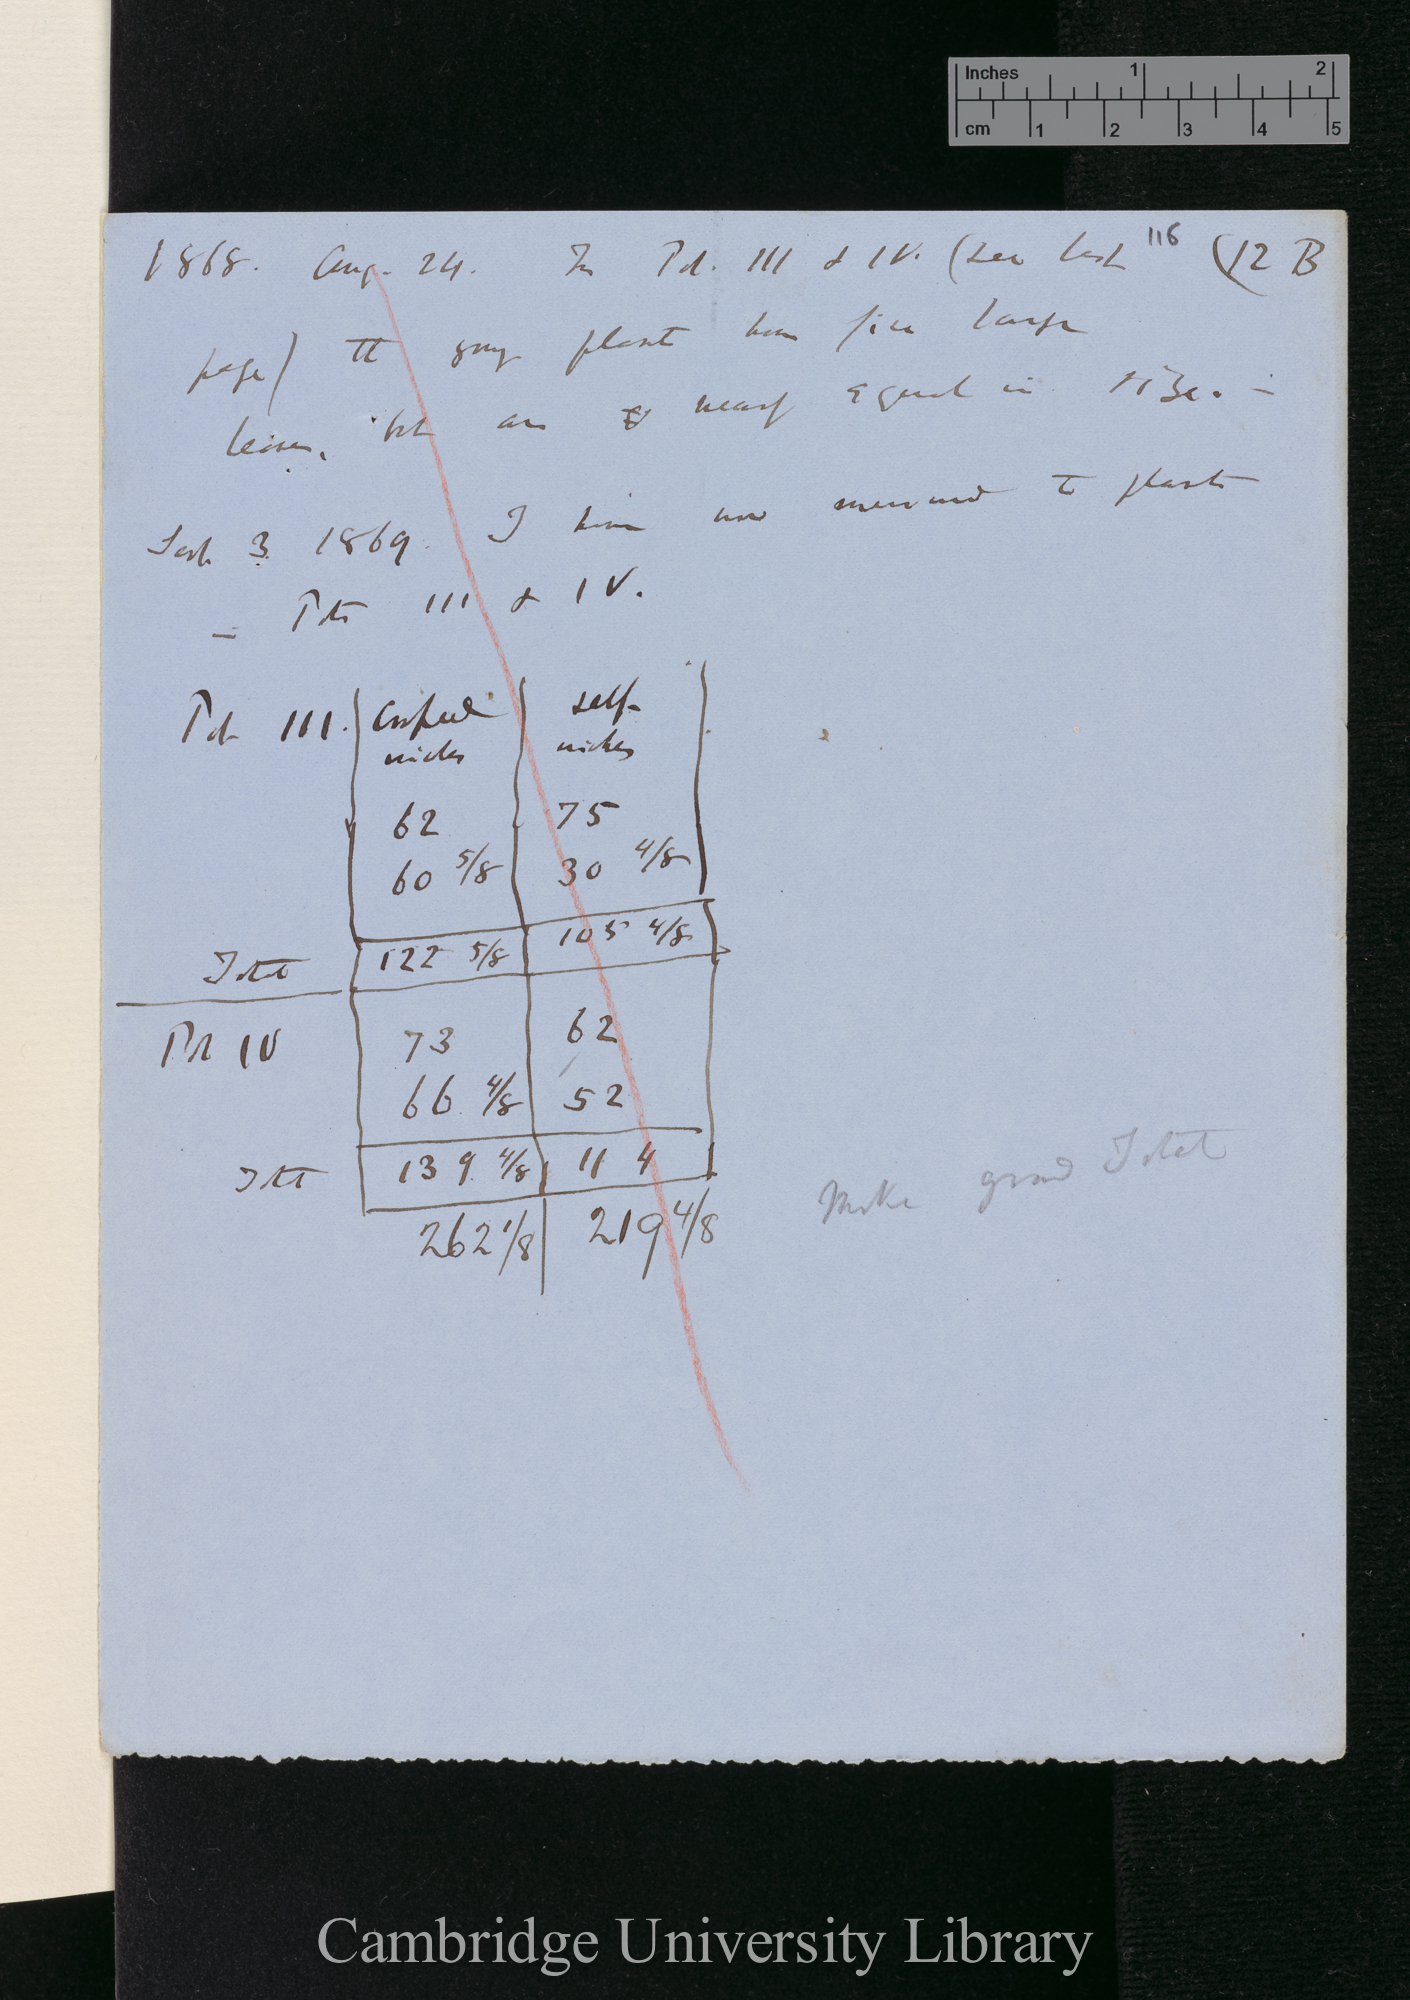 Inches 1 2
cm 1 2 3 4 5
116
1868. Aug. 24. In Pot. III & IV. (see last (12 B
page) the young plants have five large
leaves, but are nearly equal in size. —
3 1869. I have now measured the plants
— Pots III & IV.
Pot III. Crossed self-
inches inches
62 75
60 5/8 30 4/8
Total 122 5/8 105 4/8
Pot IV 73 62
66 4/8 52
Total 139 4/8 114
262 1/8 219 4/8
Make grand Total
Cambridge University Library